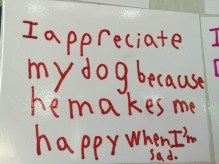 I appreciate
my dog because
he makes me
happy when I'm
sad.